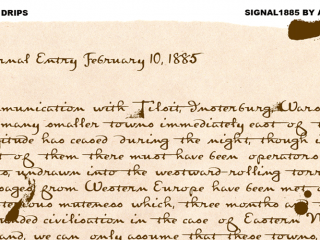 DRIPS SIGNAL1885 BY A
rnal Entry February 10, 1885
munication with Tiloit, Insterburg, Waro
many smaller towns immediately east of t
itude has ceased during the night, though i
t of them there must have been operators
to, undrawn into the westward rolling torr
from Western Europe have been met
teriouo muteness which, three months a
ended civilisation in the case of Eastern
and, we can only assume that these towns,